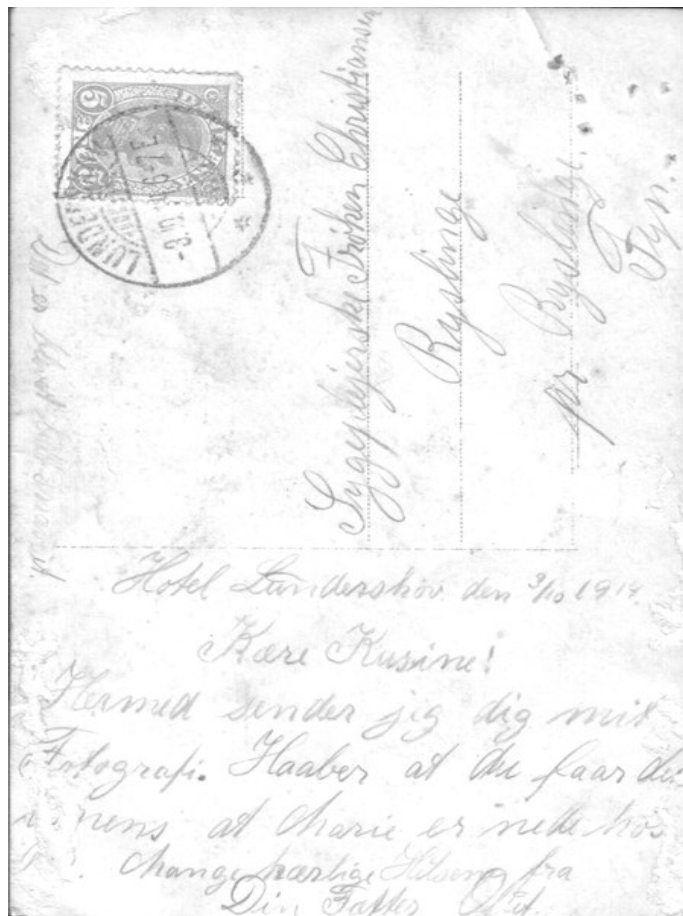 DANMARK
5 ØRE
LUNDE
-3.10.
6-7 E
Sygeplejerske Frøken Christiansen
Ryslinge
pr Ryslinge.
Fyn.
Det er
Hotel Lunderskov den 3/10 1914.
Kære Kusine!
Hermed sender jeg dig mit
Fotografi. Haaber at du faar
at Marie er nede hos
Mange kærlige Hilsener fra
Din Fætter